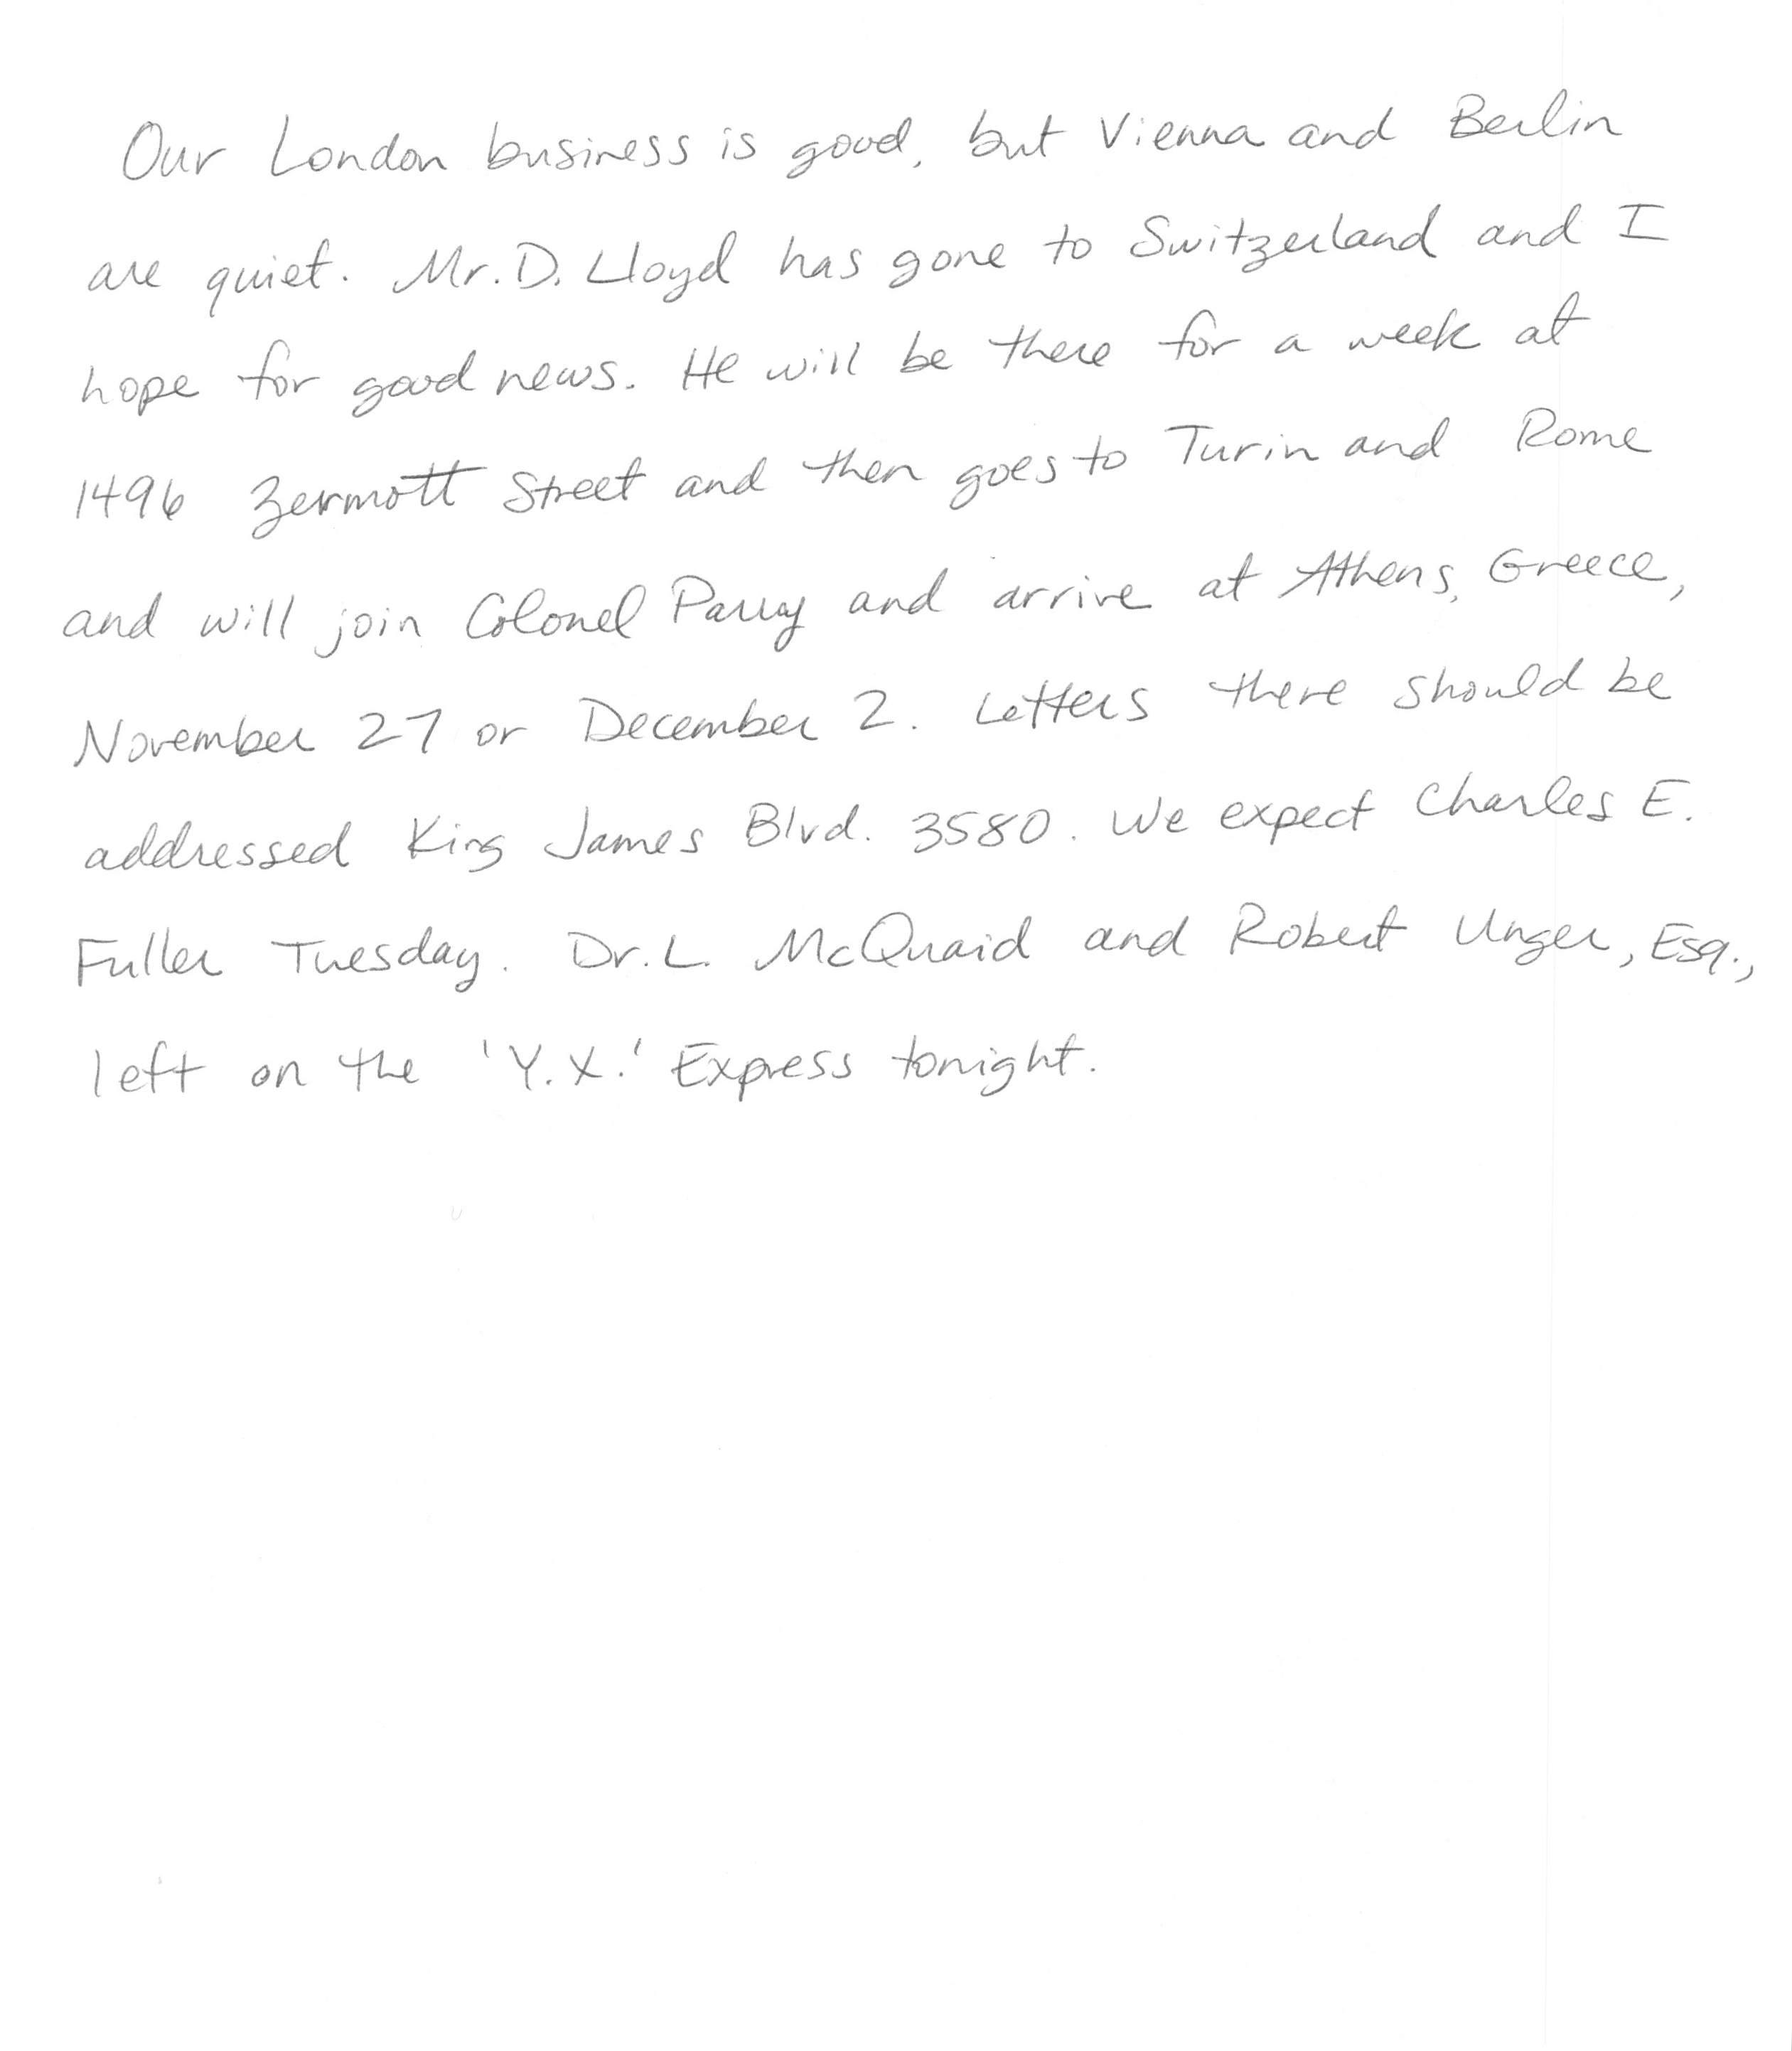 Our London business is good, but Vienna and Berlin
are quiet. Mr. D. Lloyd has gone to Switzerland and I
hope for good news. He will be there for a week at
1496 Zermott Street and then goes to Turin and Rome
and will join Colonel Parry and arrive at Athens, Greece,
November 27 or December 2. Letters there should be
addressed King James Blvd. 3580. We expect Charles E.
Fuller Tuesday. Dr. L. McQuaid and Robert Unger, Esq.,
left on the 'Y.X.' Express tonight.